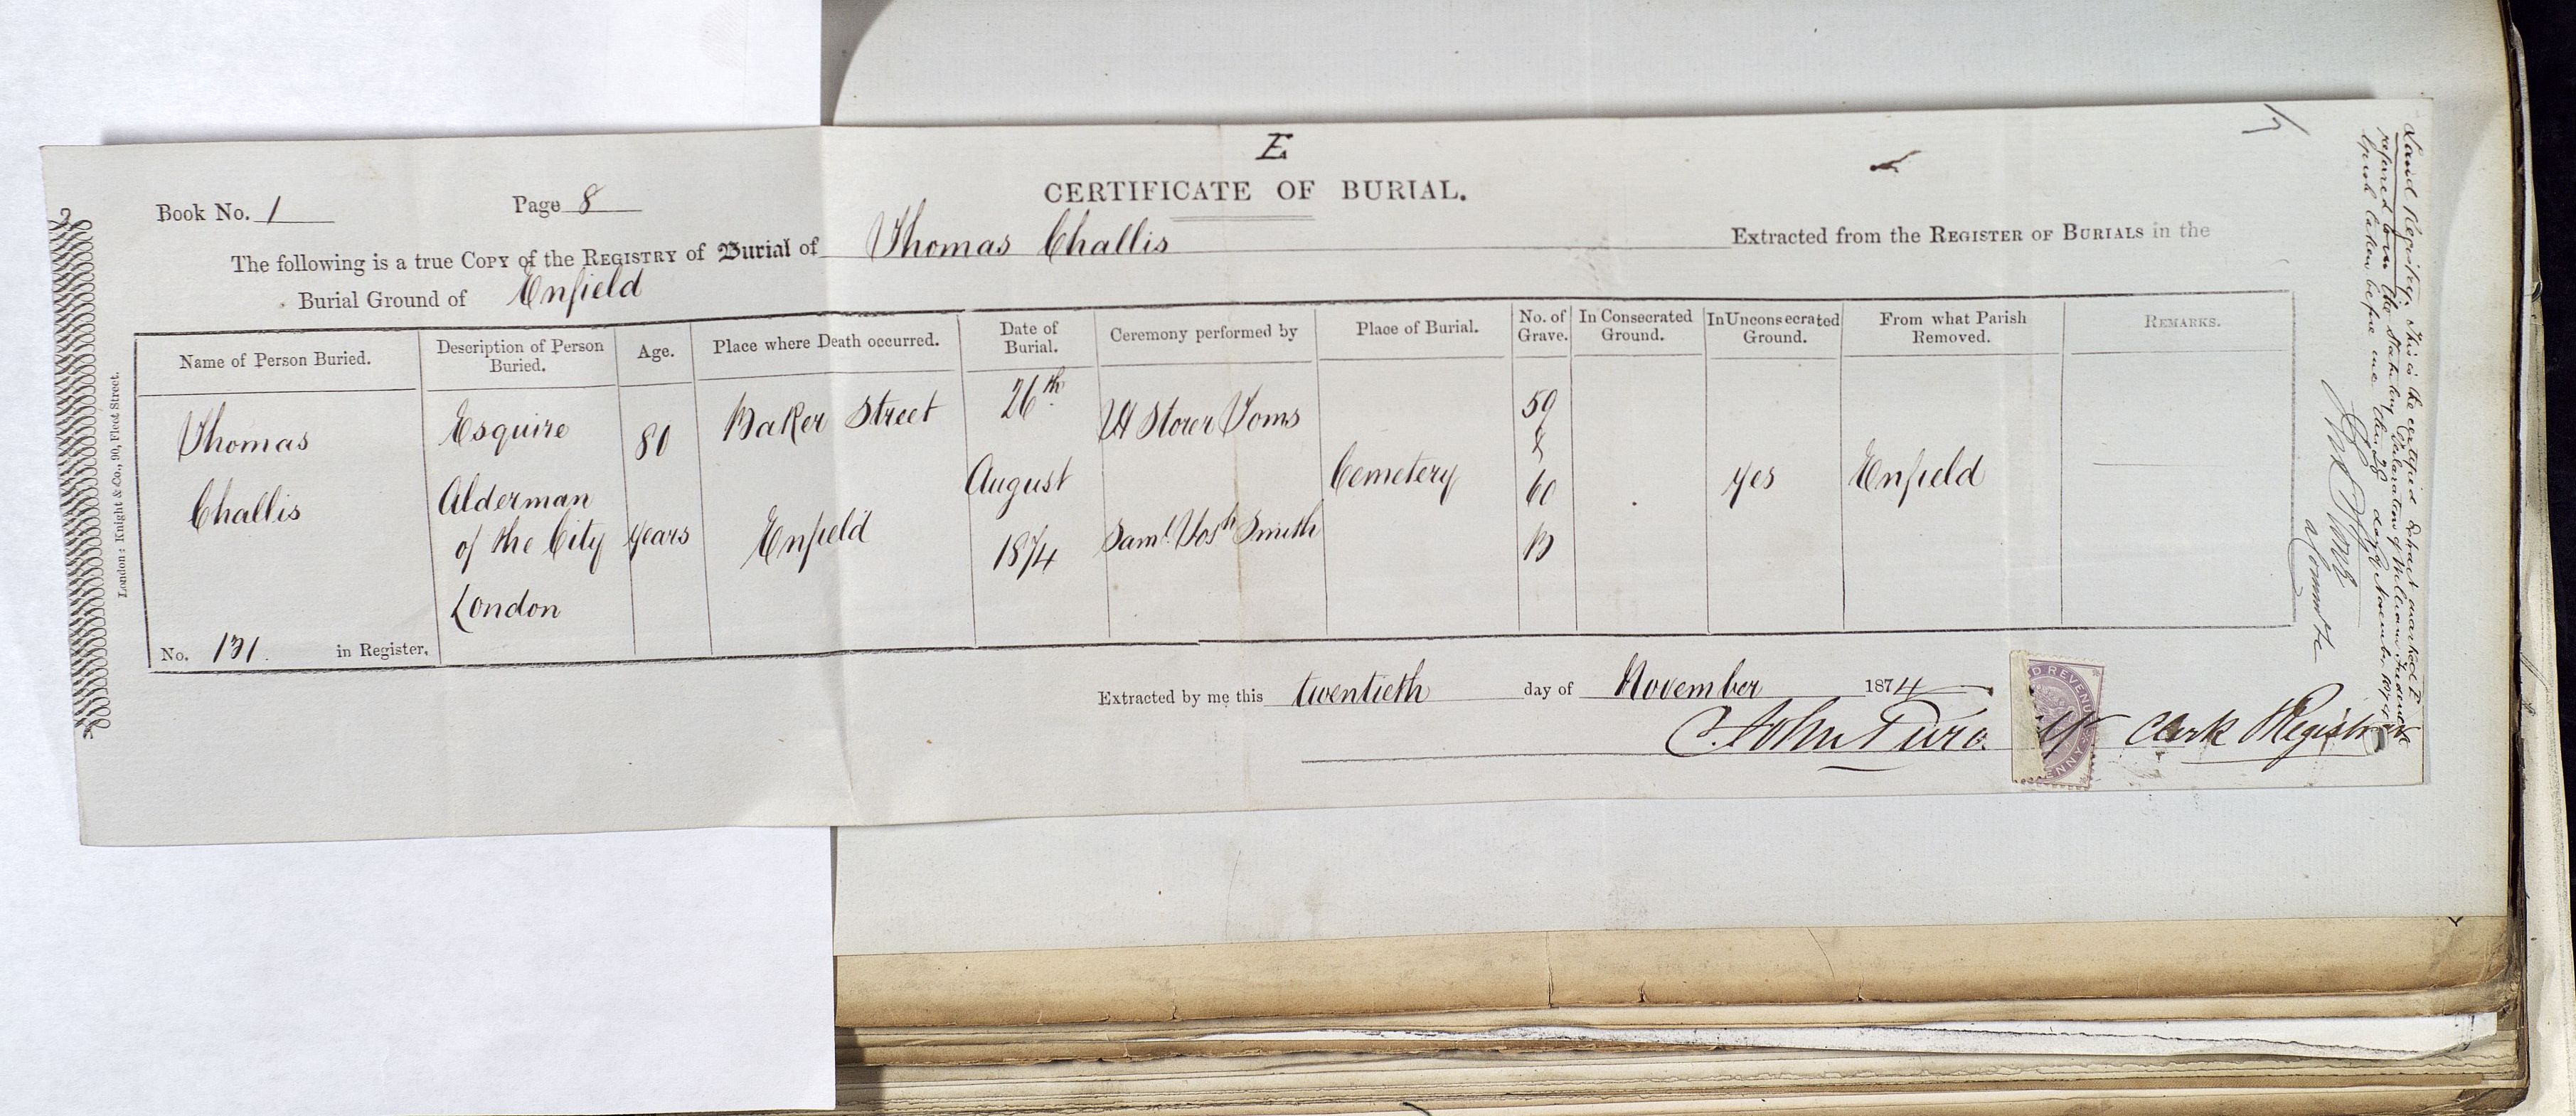 E
CERTIFICATE OF BURIAL.
Book No. 1 Page 8
The following is a true COPY of the REGISTRY of Burial of Thomas Challis Extracted from the REGISTER OF BURIALS in the
Burial Ground of Enfield
Name of Person Buried.
Description of Person Buried.
Age.
Place where Death occurred.
Date of Burial.
Ceremony performed by
Place of Burial.
No. of Grave.
In Consecrated Ground.
In Unconsecrated Ground.
From what Parish Removed.
REMARKS.
Thomas
Challis
Esquire
Alderman
of the City
London
80
years
Baker Street
Enfield
26th
August
1874
W Storer Toms
Saml. Josh Smith
Cemetery
59
&
60
B
yes
Enfield
No. 131 in Register.
Extracted by me this twentieth day of November 1874
John Purd Clerk & Registrar
London: Knight & Co., 90, Fleet Street.
Land Registry. This is the certified Extract marked E
referred to in the Statutory Declaration of William
Frederick
taken before me this 28 day of November 1874
D REVENUE
ENNY